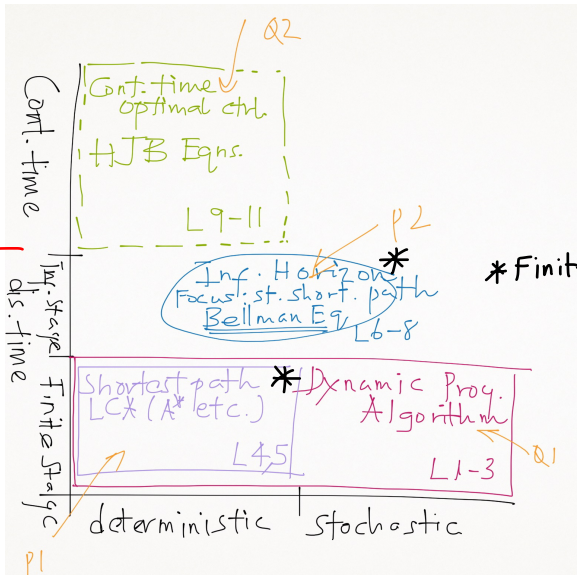 Q2
Cont. time
Cont. time
optimal ctrl.
HJB Eqns.
L9-11
P2
*
* Finit
Inf. Horizon
Focus: st. short. path
Bellman Eq.
L6-8
dis. time
Finite Stage
Shortest path
LCA (A* etc.)
L4,5
*
Dynamic Prog.
Algorithm
L1-3
Q1
deterministic
stochastic
P1